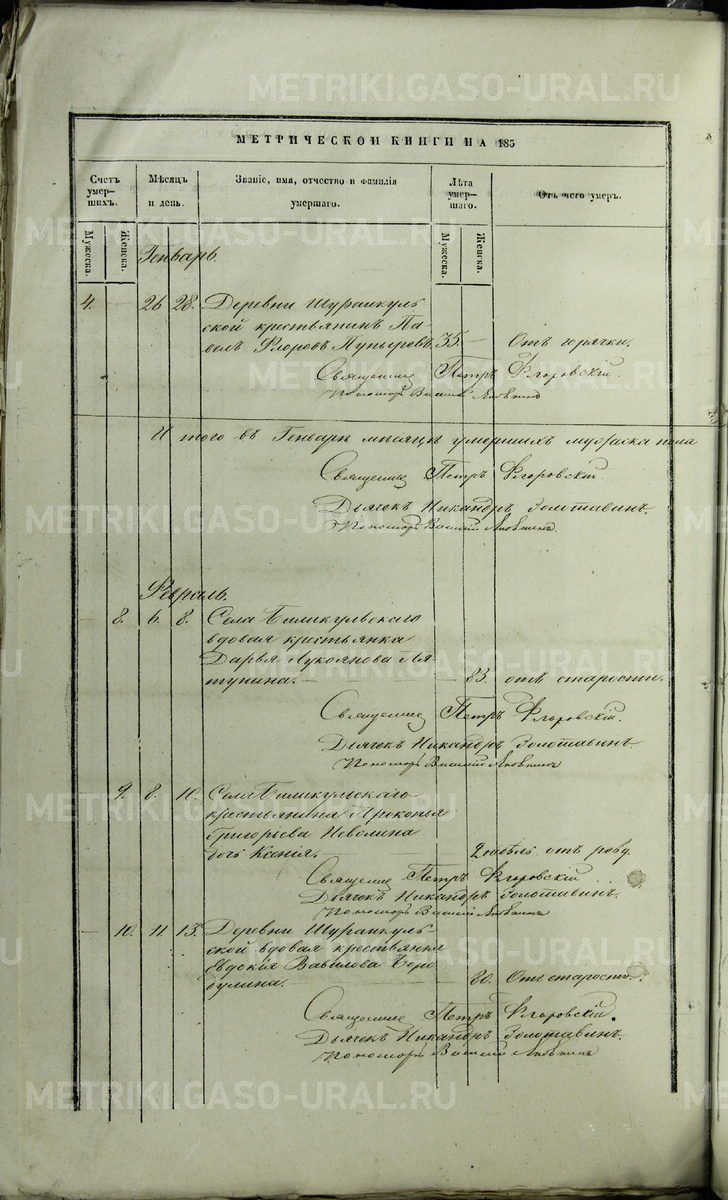 МЕТРИЧЕСКОЙ КНИГИ НА 185
Счетъ умер-шихъ.
Мѣсяцъ и день.
Званіе, имя, отчество и фамилія умершаго.
Лѣта умер-шаго.
Отъ чего умеръ.
Мужеска.
Женска.
Мужеска.
Женска.
Генварь.
4. — 26 28. Деревни Шураикуль-
ской крестьянинъ Па-
велъ Флоровъ Пупыревъ. 35. — Отъ горячки.
Священникъ Петръ Флоровскій.
Пономарь Василій
Итого въ Генварѣ мѣсяцѣ умершихъ мужеска пола
Священникъ Петръ Флоровскій
Дьячекъ Никандръ Золотавинъ.
Пономарь Василій
Февраль.
— 8. 6. 8. Села
вдовая крестьянка
Дарья Лукоянова Ля-
тунина. — — 83. отъ старости.
Священникъ Петръ Флоровскій.
Дьячекъ Никандръ Золотавинъ
Пономарь Василій
— 9. 8. 10. Села
крестьянина Прокопья
Григорьева Неволина
дочь Ксенія. — 2 недѣль отъ роду.
Священникъ Петръ Флоровскій
Дьячекъ Никандръ Золотавинъ.
Пономарь Василій
— 10. 11. 13. Деревни Шураикуль-
ской вдовая крестьянка
Евдокія Вавилова Боро-
дулина. — 80. Отъ старости.
Священникъ Петръ Флоровскій.
Дьячекъ Никандръ Золотавинъ.
Пономарь Василій
METRIKI.GASO-URAL.RU